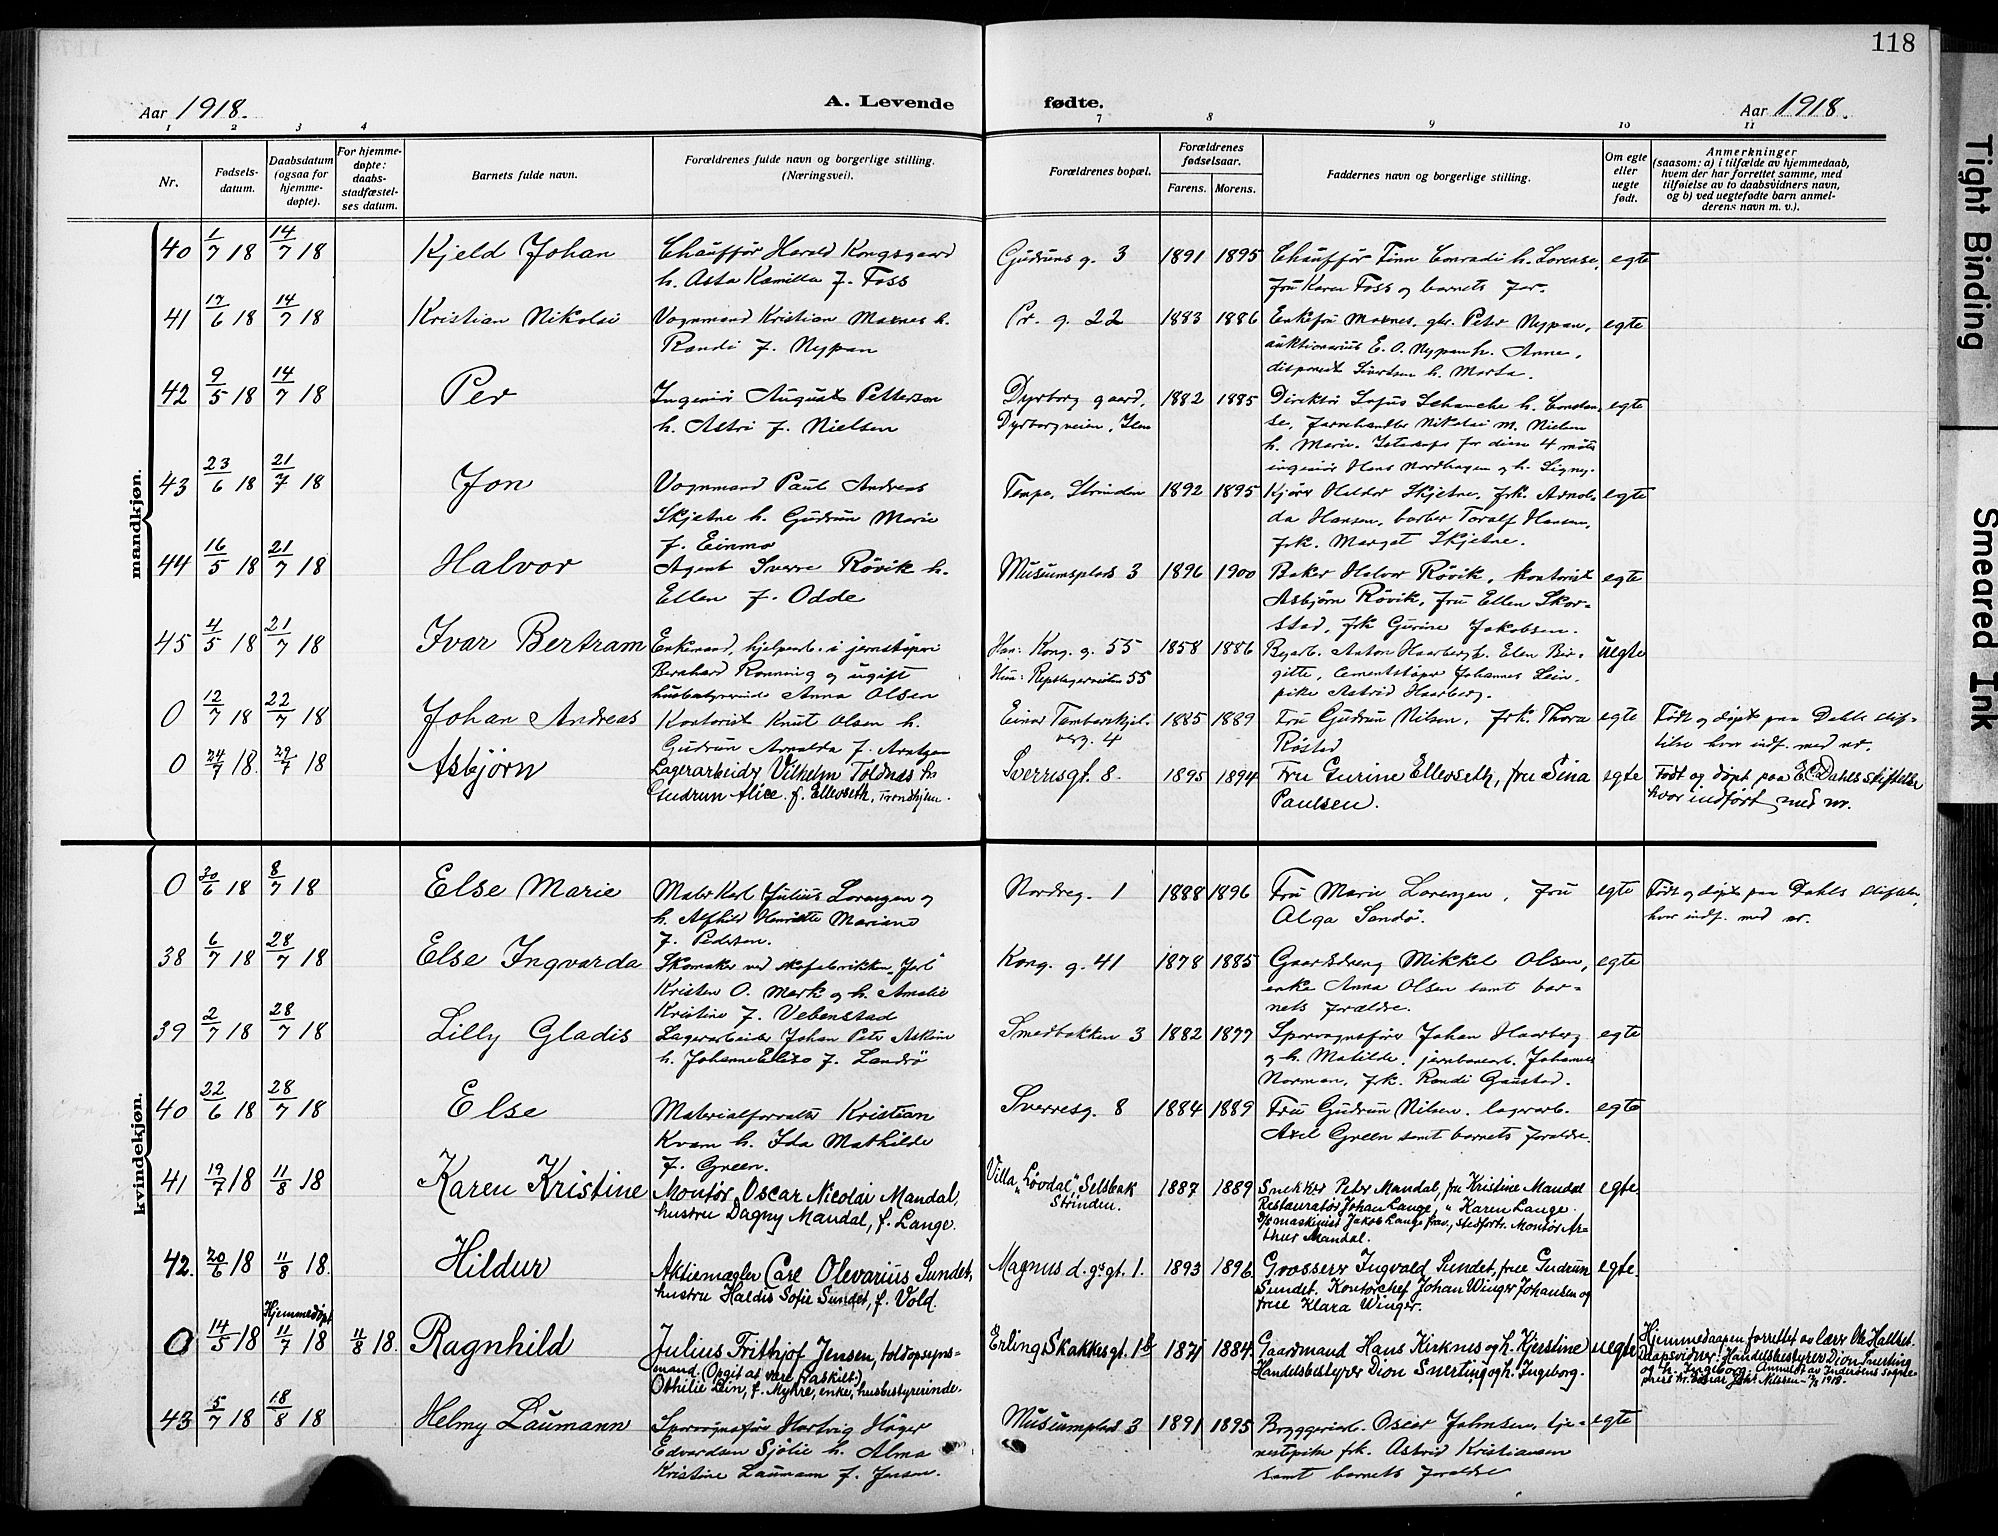 118
Aar 1918.
A. Levende fødte.
Aar 1918.
1 2 3 4 7 8 9 10 11
Nr.
Fødsels-
datum.
Daabsdatum
(ogsaa for
hjemme-
døpte).
For hjemme-
døpte:
daabs-
stadfæstel-
ses datum.
Barnets fulde navn.
Forældrenes fulde navn og borgerlige stilling.
(Næringsvei).
Forældrenes bopæl.
Forældrenes
fødselsaar.
Farens. Morens.
Faddernes navn og borgerlige stilling.
Om egte
eller
uegte
født.
Anmerkninger
(saasom: a) i tilfælde av hjemmedaab,
hvem der har forrettet samme, med
tilføielse av to daabsvidners navn,
og b) ved uegtefødte barn anmel-
derens navn m. v.).
mandkjøn.
40 1/7 18 14/7 18 Kjeld Johan Chauffør Harald Kongsgaard Gudruns g. 3 1891 1895 Chauffør Finn Conradi h. Lorense, egte
h. Asta Kamilla f. Foss fru Karen Foss og barnets far.
41 17/6 18 14/7 18 Kristian Nikolai Vognmand Kristian Moxnes h. Pr. g. 22 1883 1886 Enkefru Moxnes, gbr. Peter Nypan, egte
Randi f. Nypan auktionarius E. O. Nypan h. Anne,
disponent Sivertsen h. Marta.
42 9/5 18 14/7 18 Per Ingeniør August Petterson Dyrborg gaard, 1882 1885 Direktør Sofus Schanche h. Constan- egte
h. Astri f. Nielsen Dyrborgveien, Ilen se, farvehandler Nikolai m. Nielsen
h. Marie. Istedenfor for disse 4 møtte
ingeniør Hans Nordhagen og h. Signy.
43 23/6 18 21/7 18 Jon Vognmand Paul Andreas Tempe, Strinden 1892 1895 Kjører Haldor Skjetne, frk. Arnol- egte
Skjetne h. Gudrun Marie da Hansen, barber Toralf Hansen,
f. Einmo frk. Margot Skjetne.
44 16/5 18 21/7 18 Halvor Agent Sverre Røvik h. Museumsplads 3 1896 1900 Baker Halvor Røvik, kontorist egte
Ellen f. Odde Asbjørn Røvik, fru Ellen Skor-
stad, frk Gurine Jakobsen.
45 4/5 18 21/7 18 Ivar Bertram Enkemand, hjelpearb. i jernstøperi Han: Kong. g. 55 1858 1886 Byarb. Anton Haarberg h. Elen Bir- uegte
Bernhard Rønning og ugift Hun: Repslagerveiten 55 gitte, cementstøper Johannes Lein,
husbestyrerinde Anna Olsen pike Astrid Haarberg.
0 12/7 18 22/7 18 Johan Andreas Kontorist Knut Olsen h. Einar Tamberskjel- 1885 1889 Fru Gudrun Nilsen, frk. Thora egte Født og døpt paa Dahls stif-
Gudrun Arnalda f. Arntzen verg. 4 Røstad telse hvor indf. med nr.
0 24/7 18. 29/7 18 Asbjørn Lagerarbeider Vilhelm Toldnæs h. Sverresgt. 8. 1895 1894 Fru Gurine Ellevseth, fru Sina egte Født og døpt paa E.C.Dahls stiftelse
Gudrun Alice f. Ellevseth, Trondhjem. Paulsen. hvor indført med nr.
kvindekjøn.
0 30/6 18 8/7 18 Else Marie Maler Karl Julius Lorengen og Nordreg. 1 1888 1896 Fru Marie Lorenzen, fru egte Født og døpt paa Dahls stiftelse,
h. Alfhild Henriette Mariane Olga Sandø. hvor indf. med nr.
f. Pedersen.
38 6/7 18 28/7 18 Else Ingvarda Skomaker ved skofabrikken „Jarl" Kong. g. 41 1878 1885 Gaardsdreng Mikkel Olsen, egte
Kristen O. Mork og h. Amalie enke Anna Olsen samt bar-
Kristine f. Vebenstad nets forældre.
39 2/7 18 28/7 18 Lilly Gladis Lagerarbeider Johan Peter Asklim Smedbakken 3 1882 1877 Sporvognsfører Johan Haarberg egte
h. Johanne Elise f. Landrø og h. Matilde, jernbanearb. Johannes
Norman, frk. Randi Gaustad.
40 22/6 18 28/7 18 Else Materialforvalter Kristian Sverresg. 8 1884 1889 Fru Gudrun Nilsen, lagerarb. egte
Kvam h. Ida Mathilde Axel Green samt barnets forældre.
f. Green.
41 19/7 18 11/8 18 Karen Kristine Montør Oscar Nicolai Mandal, Villa „Løvdal", Selsbak 1887 1889 Snekker Peter Mandal, fru Kristine Mandal egte.
hustru Dagny Mandal, f. Lange. Strinden. Restauratør Johan Lange, „ Karen Lange.
D/S maskinist Jakob Lange frav., stedfortr. Montør Ar-
thur Mandal.
42. 20/6 18 11/8 18. Hildur Aktiemægler Carl Olevarius Sundet, Magnus d. g's gt. 1. 1893 1896 Grosserer Ingvald Sundet, frue Gudrun egte.
hustru Haldis Sofie Sundet, f. Vold. Sundet, Kontorchef Johan Winger Johansen og
frue Klara Winger.
Hjemmedøpt
0 14/5 18 11/7 18 11/8 18. Ragnhild Julius Frithjof Jensen, toldopsyns- Erling Skakkesgt. 1b 1871 1884. Gaardmand Hans Kirknes og h. Kjerstine uegte Hjemmedaapen forrettet av lærer Ole Hallset.
mand. (Opgit at være fraskilt.) Handelsbestyrer Dion Snerting og h. Ingeborg. Daapsvidner: Handelsbestyrer Dion Snerting
Othilie Lein, f. Myhre, enke, husbestyrerinde. og h. Ingeborg. Anmeldt av Inderøens sogne-
prest
43 5/7 18 18/8 18 Helmy Laumann Sporvognsfører Hartvig Hager Museumplads 3 1891 1895 Bryggeriarb. Oscar Johnsen, tje- egte
Edvardsen Sjølie h. Alma nestepike frk. Astrid Kristiansen
Kristine Laumann f. Jensen. samt barnets forældre
Tight Binding
Smeared Ink